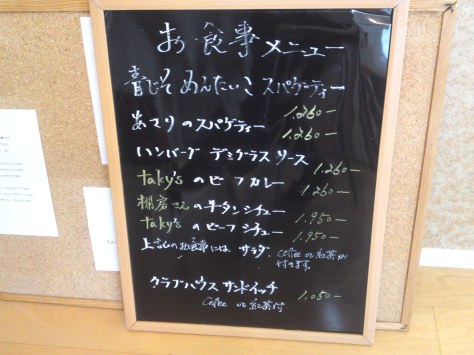 お食事メニュー
青じそ めんたいこ スパゲティー
1.260-
あさりのスパゲティー
1.260-
ハンバーグ デミグラス ソース
1.260-
taky's のビーフカレー
1.260-
さんの牛タンシチュー
1.950-
taky's のビーフ シチュー
1.950-
上記のお食事には、サラダ、Coffee or 紅茶が
付きます。
クラブハウス サンドイッチ
1,050-
Coffee or 紅茶付